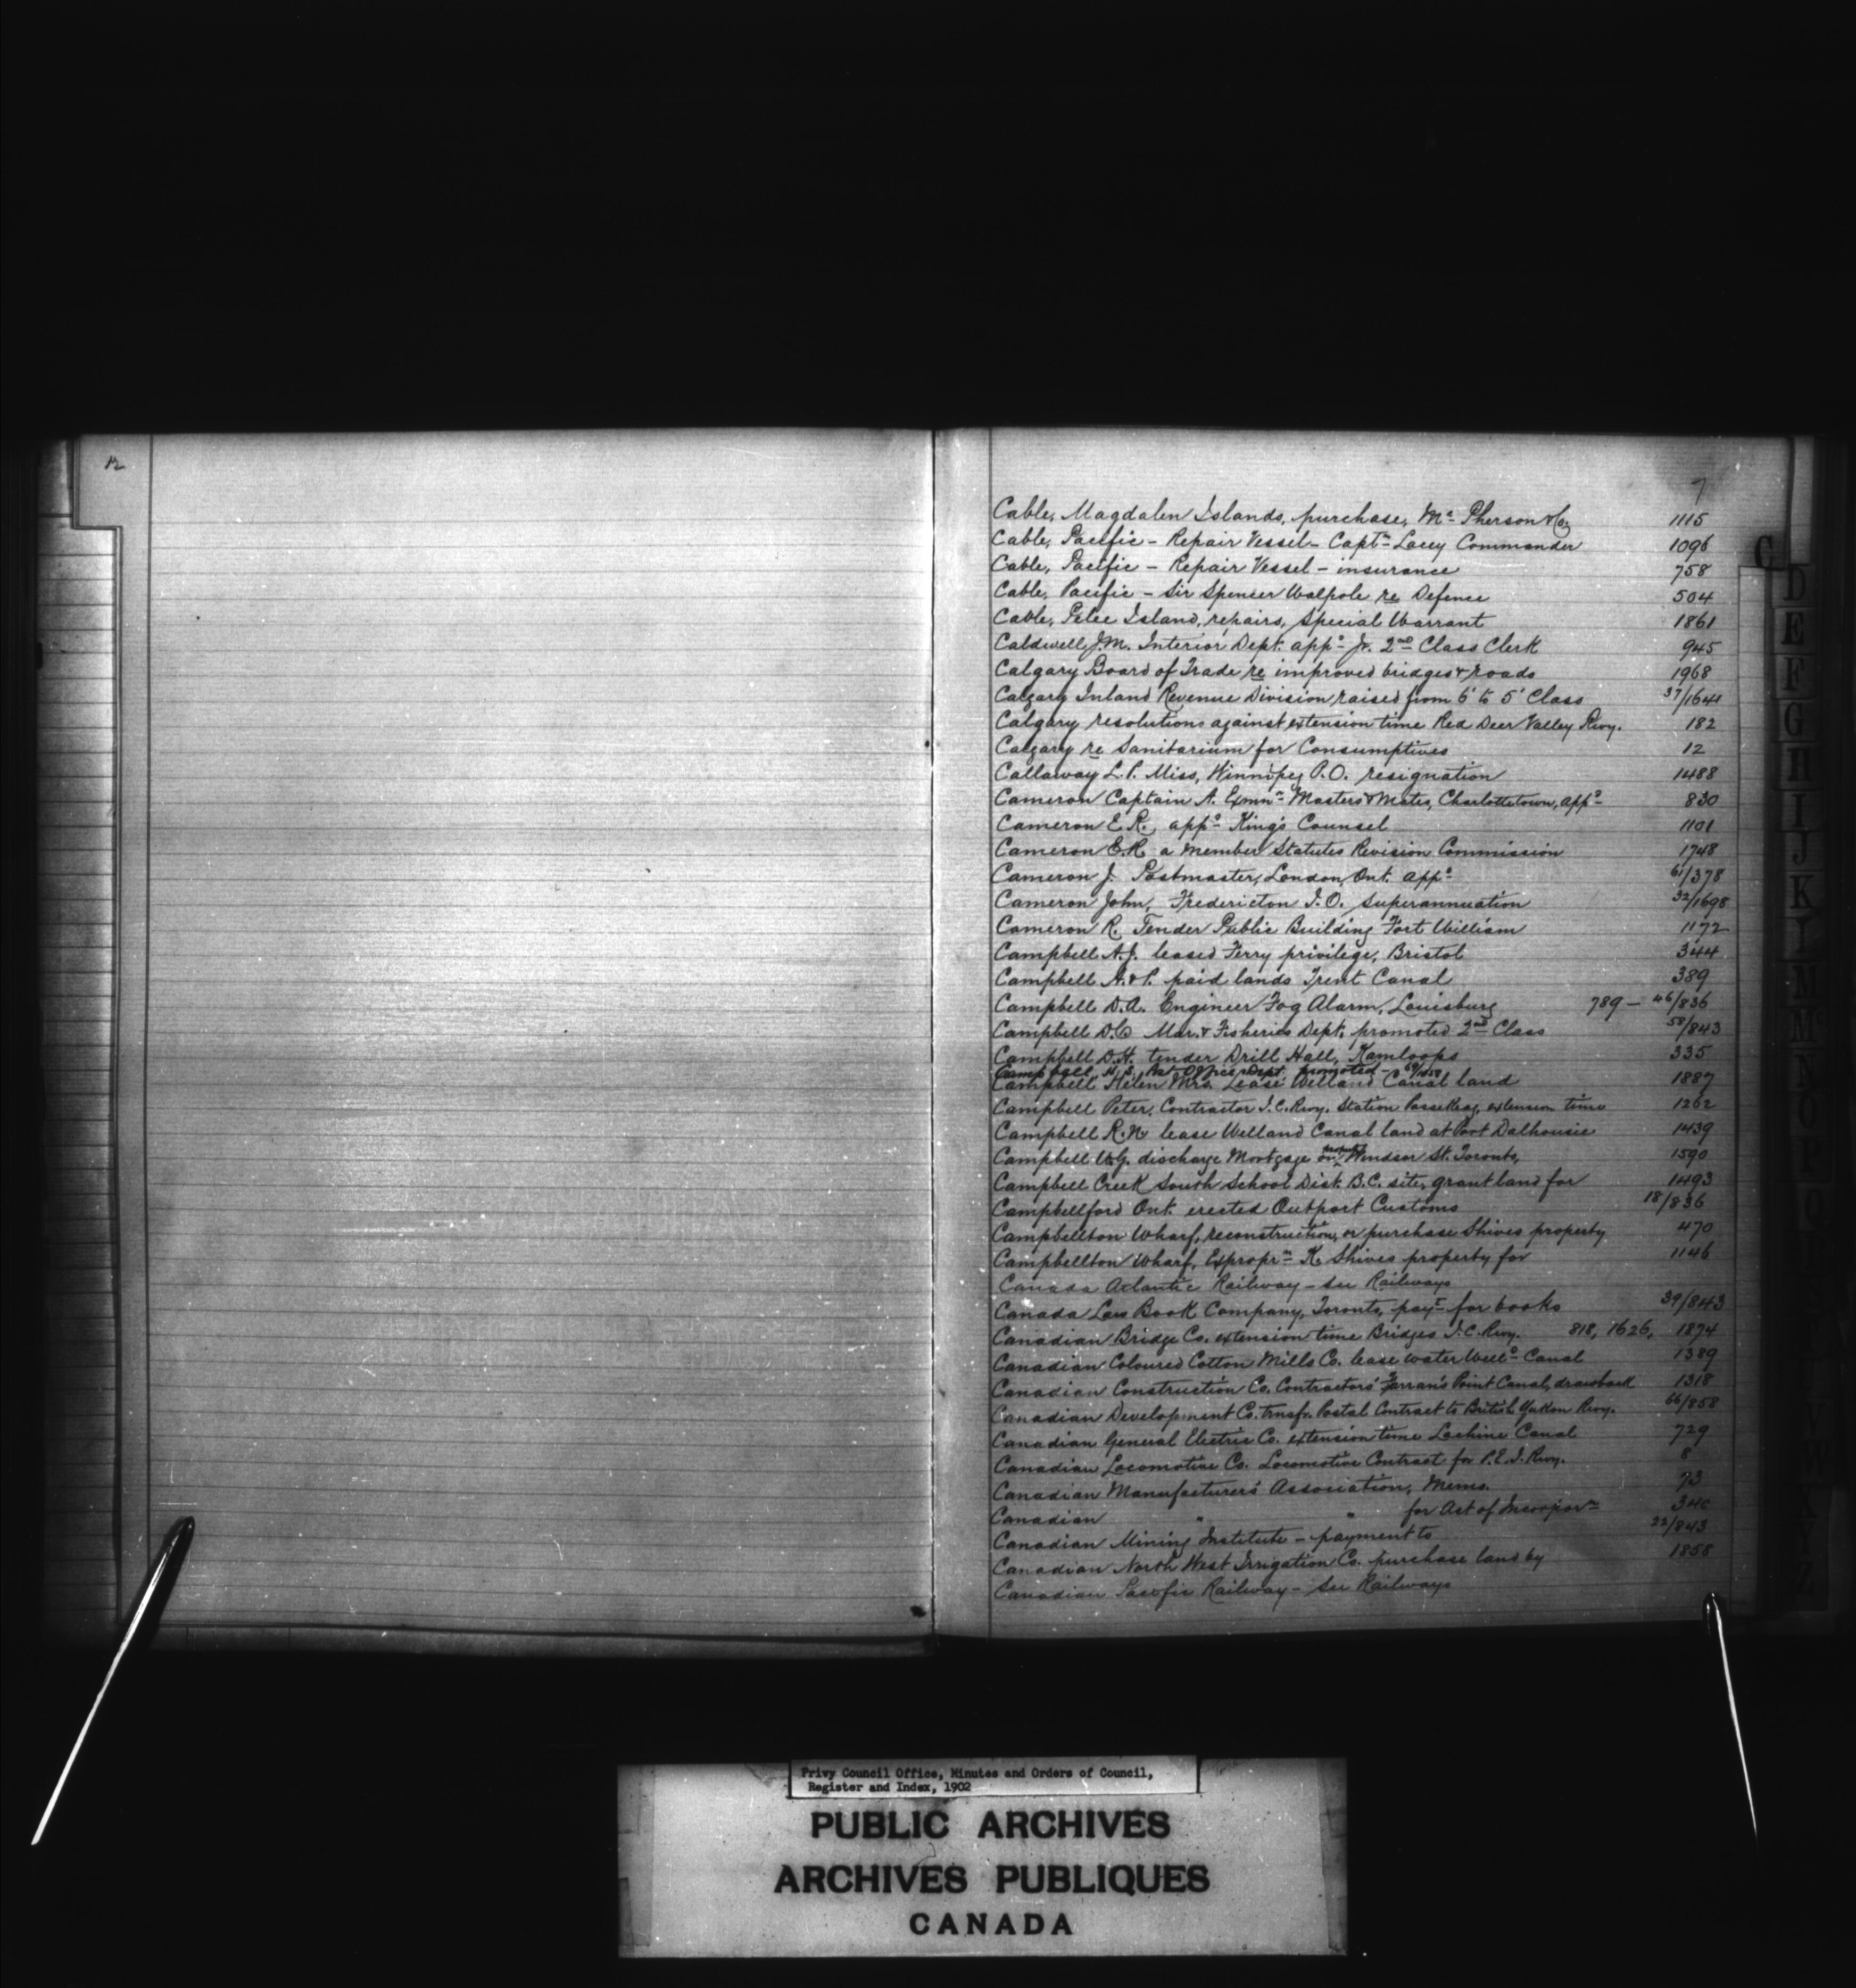 7
Cable, Magdalen Islands, purchase, Mc Pherson & Co. 1115
Cable, Pacific - Repair Vessel - Captn Lacey Commander 1096
Cable, Pacific - Repair Vessel - insurance 758
Cable, Pacific - Sir Spencer Walpole re Defence 504
Cable, Pelee Island, repairs, Special Warrant 1861
Caldwell J.M. Interior Dept. appd Jr. 2nd Class Clerk 945
Calgary Board of Trade re improved bridges & roads 1968
Calgary Inland Revenue Division raised from 6' to 5' Class 37/1641
Calgary resolutions against extension time Red Deer Valley Rwy. 182
Calgary re Sanitarium for Consumptives 12
Callaway L.P. Miss, Winnipeg P.O. resignation 1488
Cameron Captain A. Exmnr Masters & Mates, Charlottetown, appd 830
Cameron E.R. appd King's Counsel 1101
Cameron E.R. a Member Statutes Revision Commission 1748
Cameron J. Postmaster, London, Ont. appd 61/378
Cameron John, Fredericton P.O. Superannuation 32/1698
Cameron R. Tender Public Building Fort William 1172
Campbell A.J. leased Ferry privilege, Bristol 344
Campbell A. & P. paid lands Trent Canal 389
Campbell D.A. Engineer Fog Alarm, Louisburg 789 - 46/836
Campbell D.C. Mar. & Fisheries Dept. promoted 2nd Class 58/843
Campbell D.H. tender Drill Hall, Kamloops 335
Campbell, H.S. Post Office Dept. promoted -
Campbell Helen Mrs. Lease Welland Canal land 1887
Campbell Peter, Contractor I.C. Rwy. Station Passekeag, extension time 1262
Campbell R.N. lease Welland Canal land at Port Dalhousie 1439
Campbell W.G. discharge Mortgage on property Windsor St. Toronto, 1590
Campbell Creek South School Dist. B.C. site, grant land for 1493
Campbellford Ont. erected Outport Customs 18/836
Campbellton Wharf, reconstruction, or purchase Shives property 470
Campbellton Wharf, Expropn K. Shives property for 1146
Canada Atlantic Railway - See Railways
Canada Law Book Company, Toronto, payt for books 39/843
Canadian Bridge Co. extension time Bridges I.C. Rwy. 818, 1626, 1874
Canadian Coloured Cotton Mills Co. lease water Welld Canal 1389
Canadian Construction Co. Contractors' Farran's Point Canal, drawback 1318
Canadian Development Co. trnsfr. Postal Contract to British Yukon Rwy. 66/858
Canadian General Electric Co. extension time Lachine Canal 729
Canadian Locomotive Co. Locomotive Contract for P.E.I. Rwy. 8
Canadian Manufacturers' Association, Memo. 73
Canadian " " for Act of Incorporn 346
Canadian Mining Institute - payment to 22/843
Canadian North West Irrigation Co. purchase land by 1858
Canadian Pacific Railway - See Railways
C
D
E
F
G
H
I
J
K
L
M
N
O
Privy Council Office, Minutes and Orders of Council,
Register and Index, 1902
PUBLIC ARCHIVES
ARCHIVES PUBLIQUES
CANADA